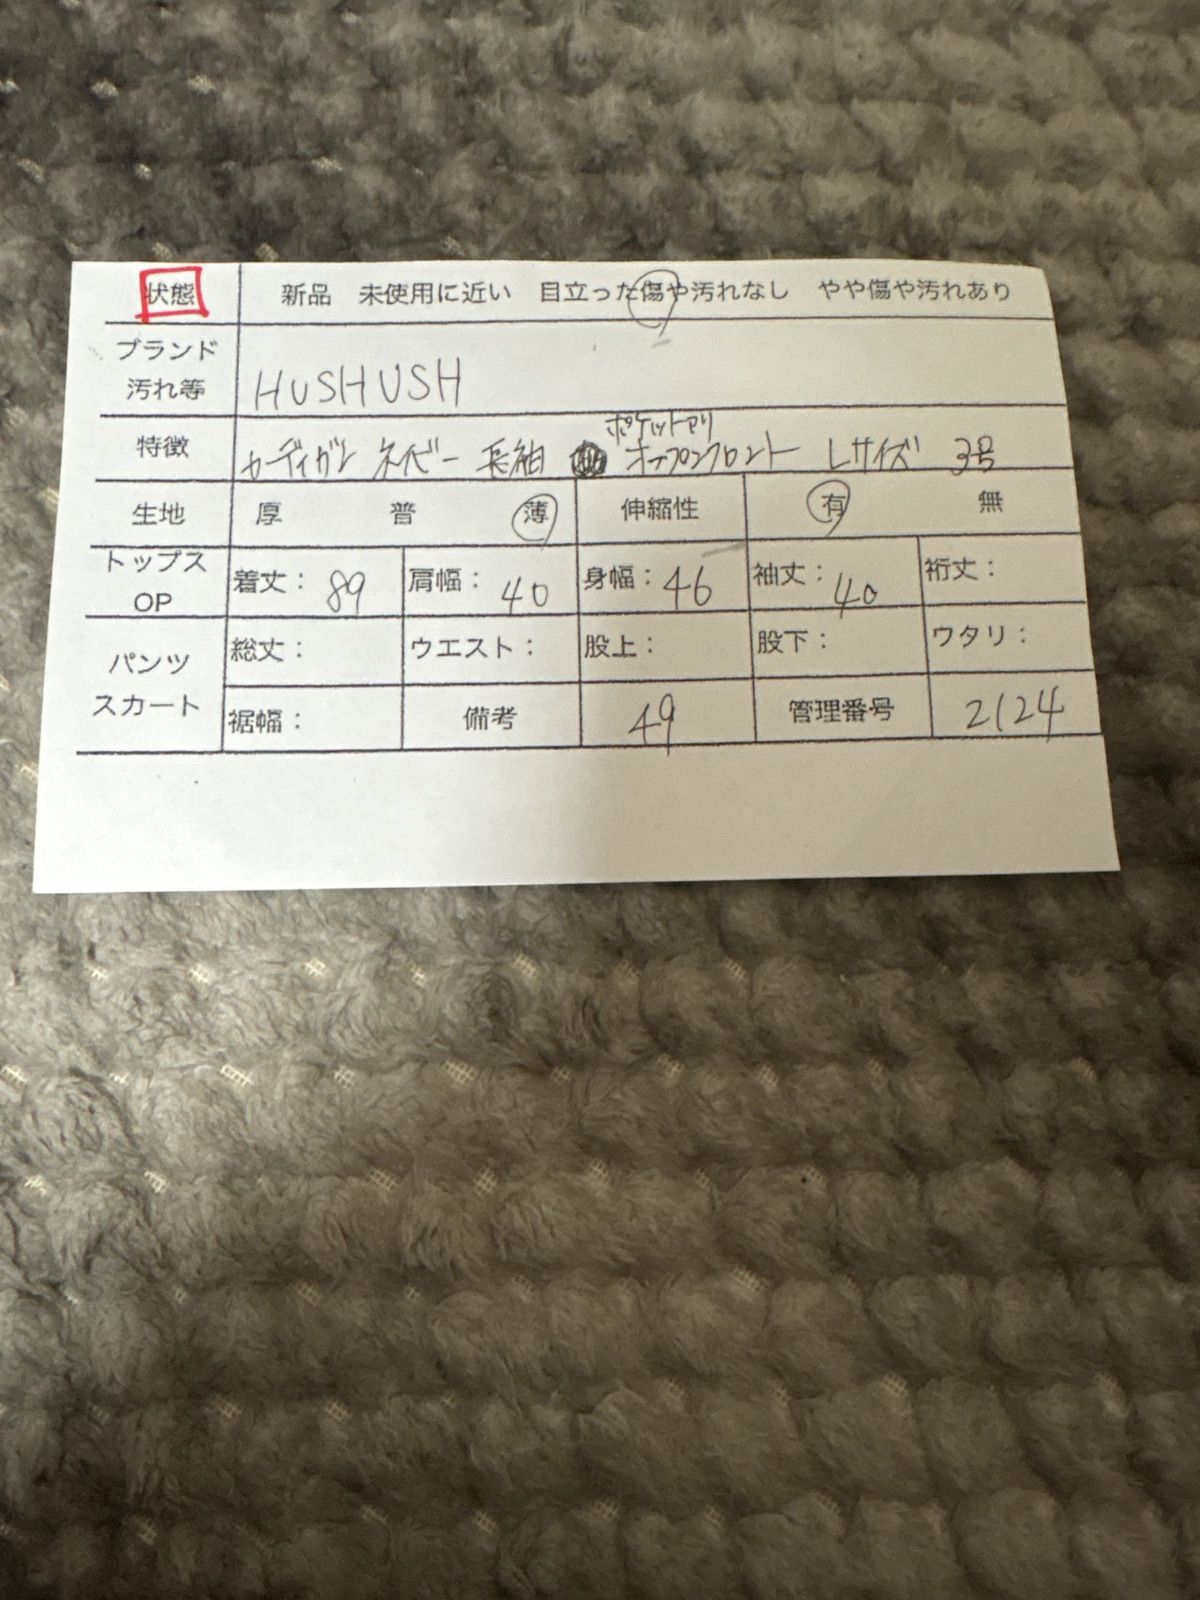 状態 新品 未使用に近い 目立った傷や汚れなし やや傷や汚れあり
ブランド
汚れ等 HUSHUSH
ポケットアリ
特徴 カーディガン ネイビー 長袖 オープンフロント Lサイズ 3号
生地 厚 普 薄 伸縮性 有 無
トップス
OP 着丈: 89 肩幅: 40 身幅: 46 袖丈: 40 裄丈:
パンツ
スカート 総丈: ウエスト: 股上: 股下: ワタリ:
裾幅: 備考 49 管理番号 2124